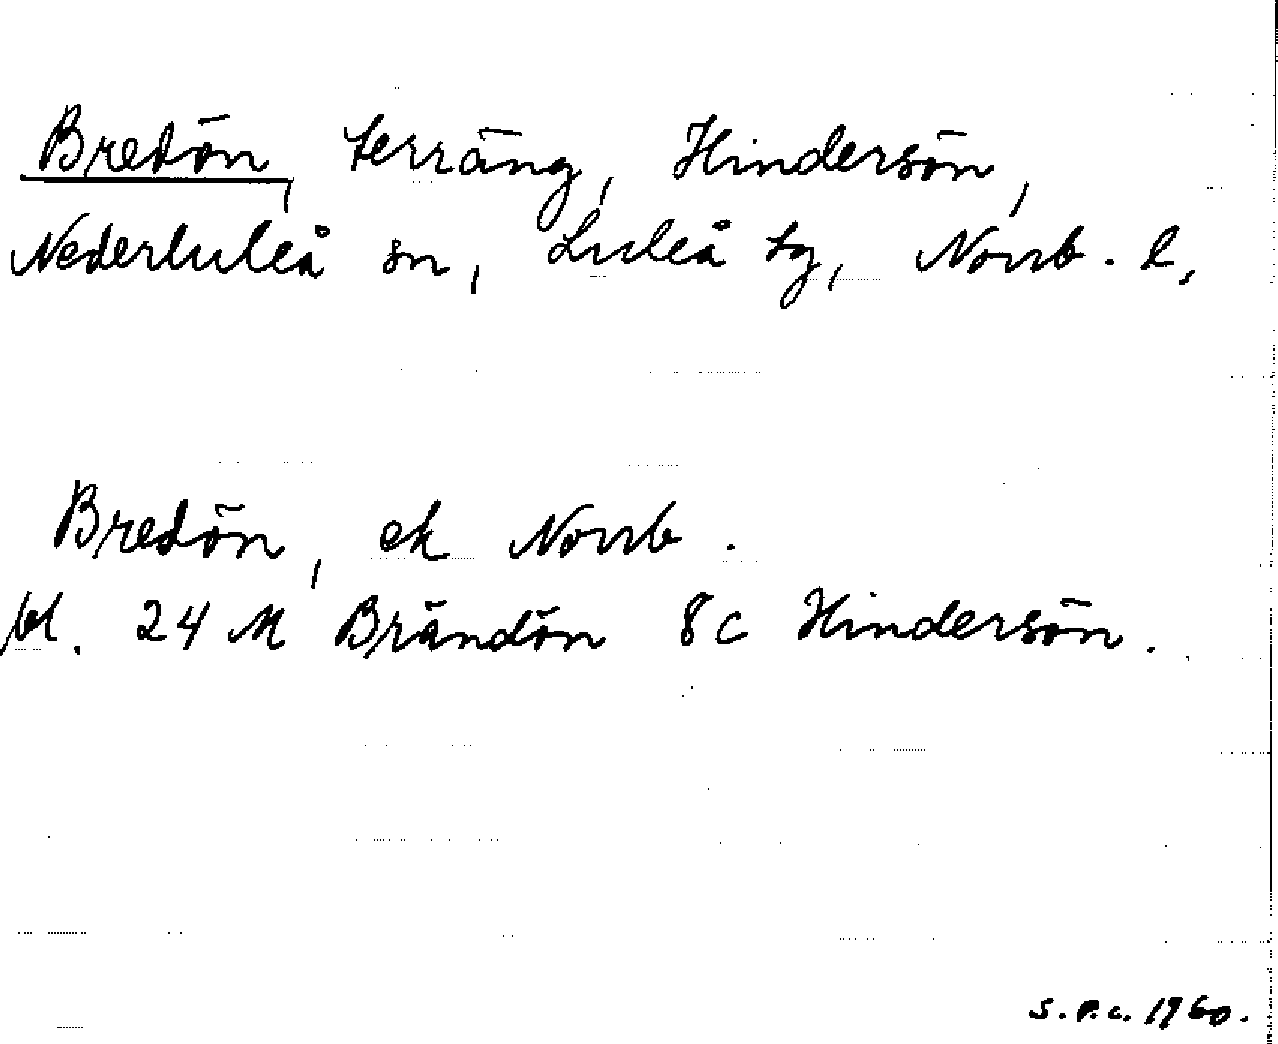 Bredön, terräng, Hindersön,
Nederluleå sn, Luleå tg, Norrb. l.
Bredön, ek Norrb.
bl. 24 M Brändön 8c Hindersön.
S.P.C. 1960.